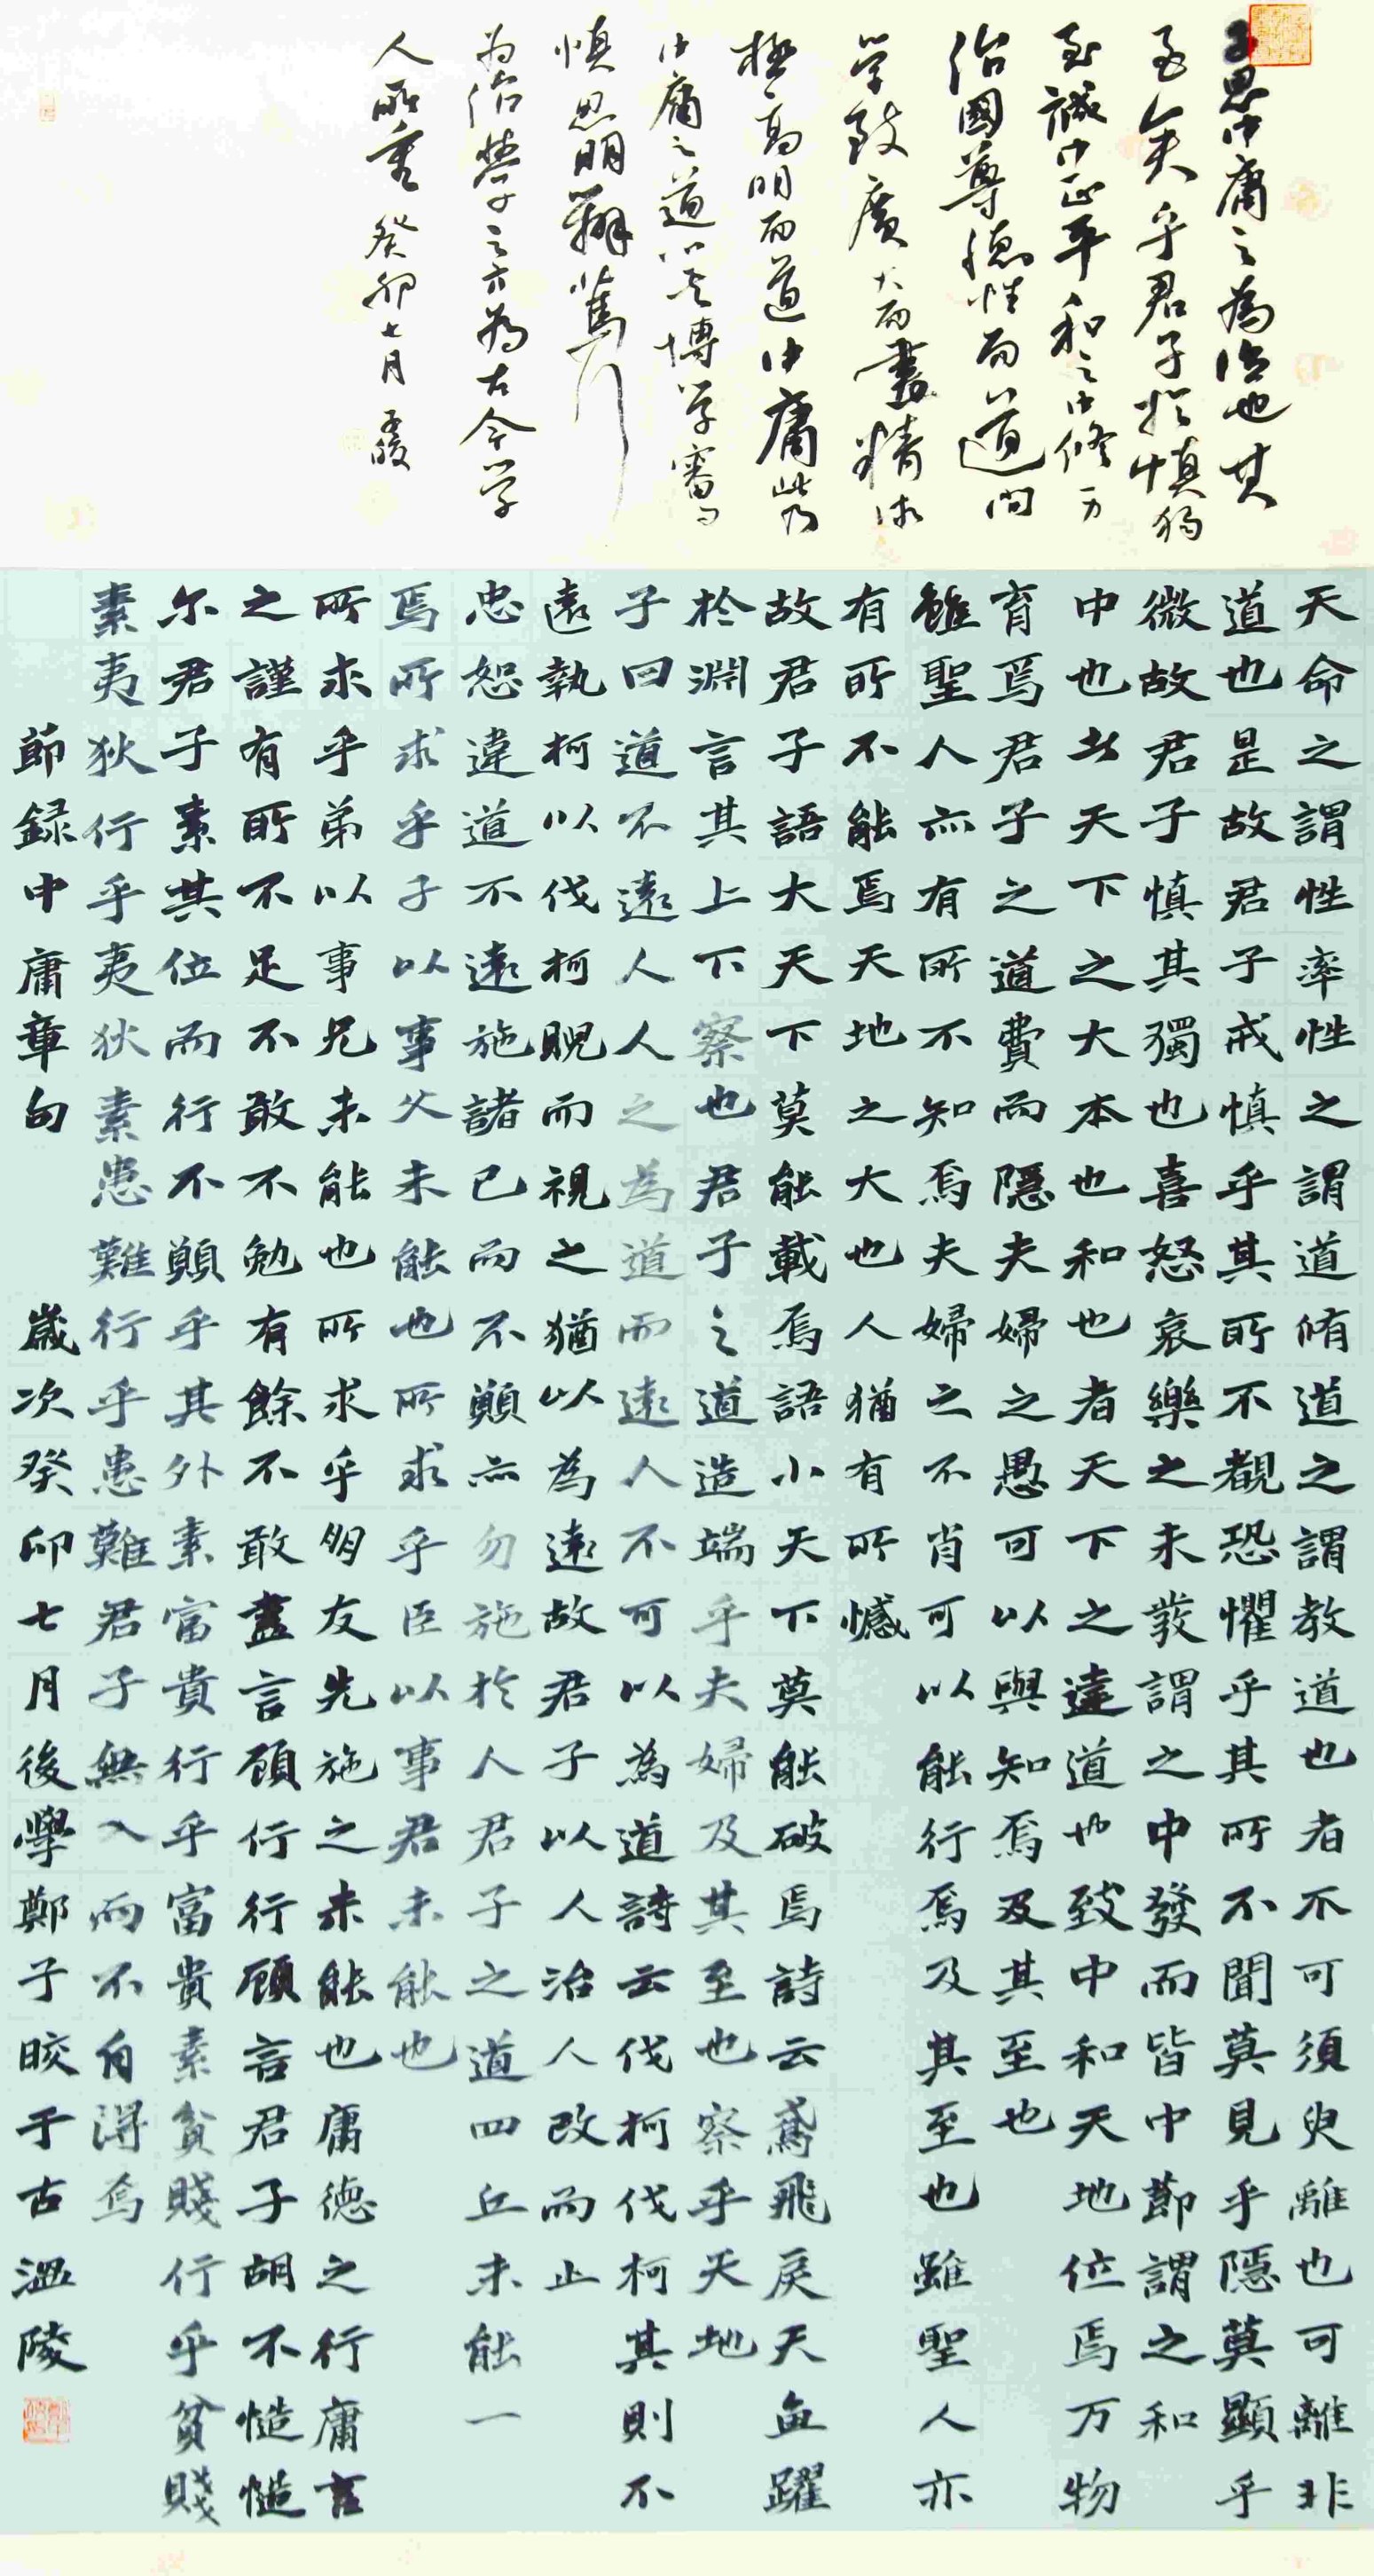 子思中庸之為德也其
至矣乎君子於慎獨
至誠中正平和之中修
治國尊德性而道問
学致廣大而盡精微
極高明而道中庸此乃
中庸之道以其博学審問
慎思明辨篤行
為治學之方為古今学
人所重 癸卯七月 子晈
天命之謂性率性之謂道脩道之謂教道也者不可須臾離也可離非
道也是故君子戒慎乎其所不覩恐懼乎其所不聞莫見乎隱莫顯乎
微故君子慎其獨也喜怒哀樂之未發謂之中發而皆中節謂之和
中也者天下之大本也和也者天下之達道也致中和天地位焉万物
育焉君子之道費而隱夫婦之愚可以與知焉及其至也
雖聖人亦有所不知焉夫婦之不肖可以能行焉及其至也雖聖人亦
有所不能焉天地之大也人猶有所憾
故君子語大天下莫能載焉語小天下莫能破焉詩云鳶飛戾天魚躍
於淵言其上下察也君子之道造端乎夫婦及其至也察乎天地
子曰道不遠人人之為道而遠人不可以為道詩云伐柯伐柯其則不
遠執柯以伐柯睨而視之猶以為遠故君子以人治人改而止
忠恕違道不遠施諸己而不願亦勿施於人君子之道四丘未能一
焉所求乎子以事父未能也所求乎臣以事君未能也
所求乎弟以事兄未能也所求乎朋友先施之未能也庸德之行庸言
之謹有所不足不敢不勉有餘不敢盡言顧行行顧言君子胡不慥慥
尔君子素其位而行不願乎其外素富貴行乎富貴素貧賤行乎貧賤
素夷狄行乎夷狄素患難行乎患難君子無入而不自得焉
節録中庸章句 歲次癸卯七月後學鄭子晈于古溫陵